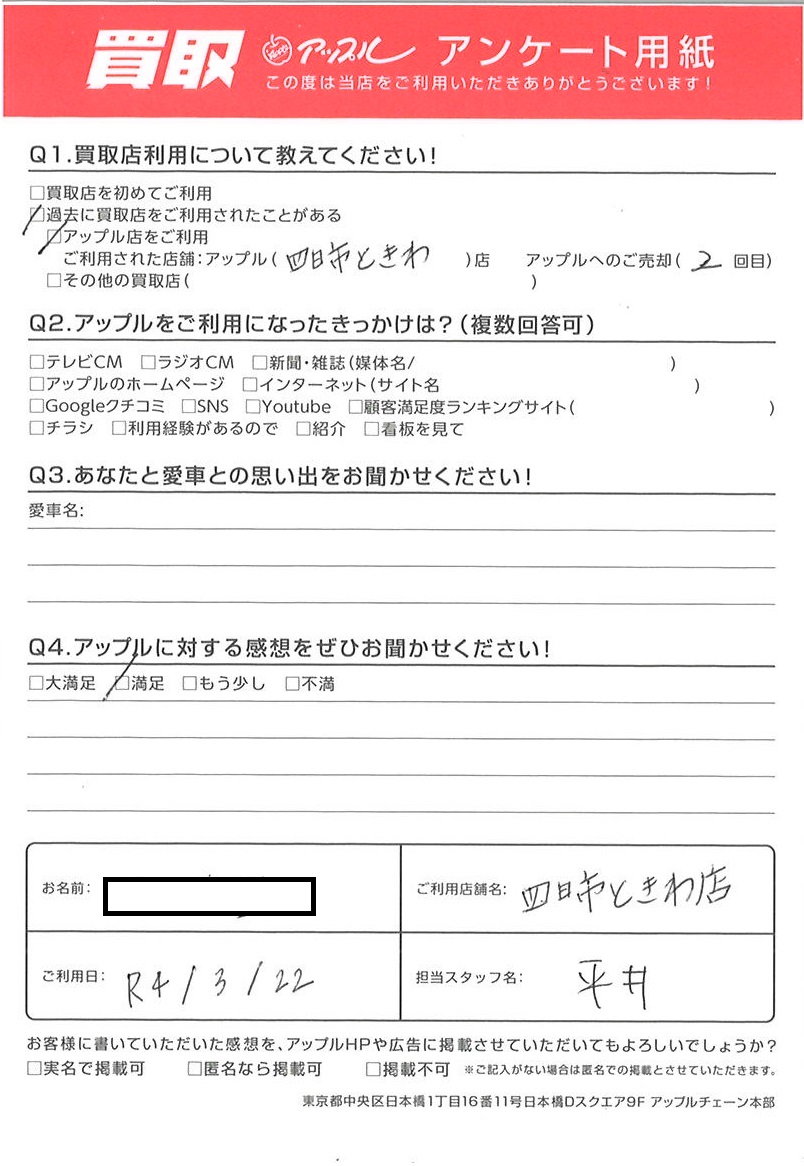 買取 アップル アンケート用紙
この度は当店をご利用いただきありがとうございます!
Q1.買取店利用について教えてください!
□買取店を初めてご利用
□過去に買取店をご利用されたことがある
□アップル店をご利用
ご利用された店舗:アップル( 四日市ときわ )店 アップルへのご売却( 2 回目)
□その他の買取店( )
Q2.アップルをご利用になったきっかけは?(複数回答可)
□テレビCM □ラジオCM □新聞・雑誌(媒体名/ )
□アップルのホームページ □インターネット(サイト名 )
□Googleクチコミ □SNS □Youtube □顧客満足度ランキングサイト( )
□チラシ □利用経験があるので □紹介 □看板を見て
Q3.あなたと愛車との思い出をお聞かせください!
愛車名:
Q4.アップルに対する感想をぜひお聞かせください!
□大満足 □満足 □もう少し □不満
お名前: ご利用店舗名: 四日市ときわ店
ご利用日: R4/3/22 担当スタッフ名: 平井
お客様に書いていただいた感想を、アップルHPや広告に掲載させていただいてもよろしいでしょうか?
□実名で掲載可 □匿名なら掲載可 □掲載不可 ※ご記入がない場合は匿名での掲載とさせていただきます。
東京都中央区日本橋1丁目16番11号日本橋Dスクエア9F アップルチェーン本部